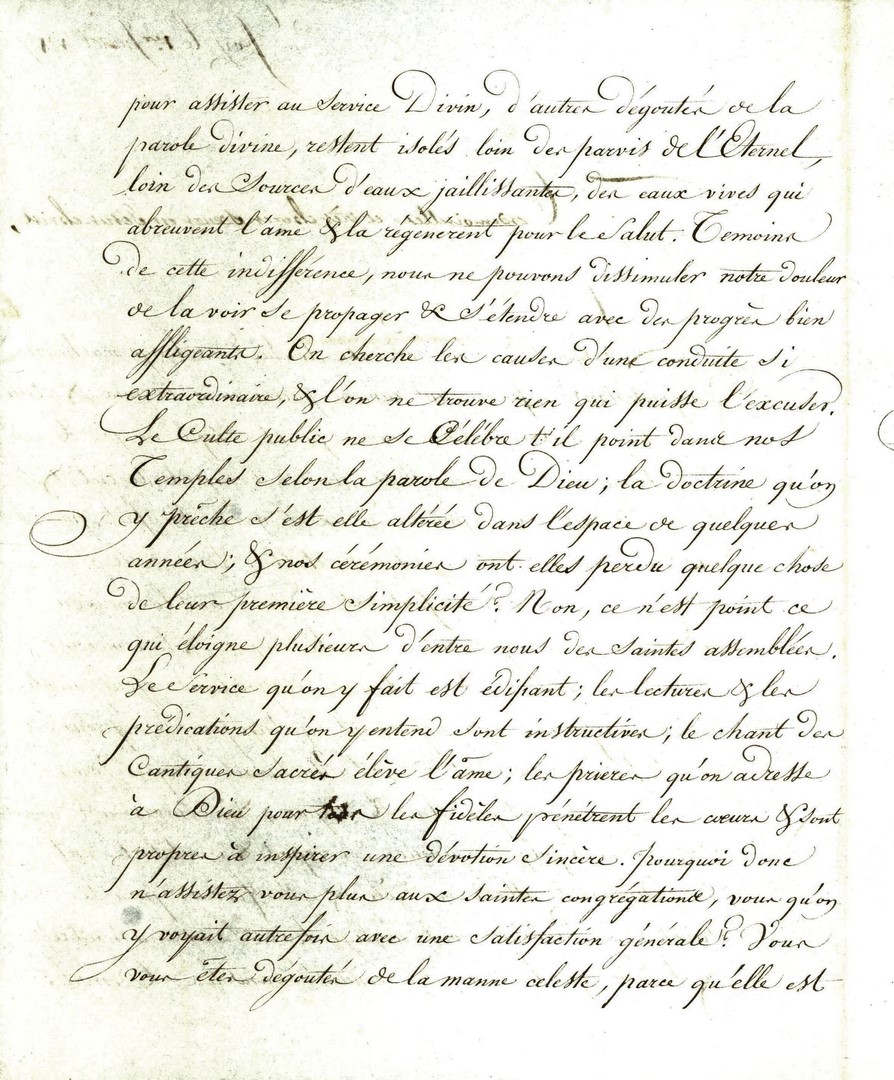 pour assister au service Divin, d'autres dégoutés de la
parole divine, restent isolés loin des parvis de l'Eternel,
loin des Sources d'eaux jaillissantes, des eaux vives qui
abreuvent l'âme & la régénerent pour le Salut. Temoins
de cette indifférence, nous ne pouvons dissimuler notre douleur
de la voir se propager & s'étendre avec des progrès bien
affligeants. On cherche les causes d'une conduite si
extraordinaire, & l'on ne trouve rien qui puisse l'excuser.
Le Culte public ne se Célébre t'il point dans nos
Temples selon la parole de Dieu; la doctrine qu'on
y prêche s'est elle altérée dans l'espace de quelques
années; & nos cérémonies ont elles perdu quelque chose
de leur première simplicité? Non, ce n'est point ce
qui éloigne plusieurs d'entre nous des saintes assemblées.
Le Service qu'on y fait est édifiant; les lectures & les
prédications qu'on y entend sont instructives; le chant des
Cantiques sacrés élève l'âme; les prieres qu'on adresse
à Dieu pour les fidèles pénétrent les cœurs & sont
propres à inspirer une dévotion sincère. Pourquoi donc
n'assistez vous plus aux saintes congrégations, vous qu'on
y voyait autrefois avec une satisfaction générale? Vous
vous êtes dégoutés de la manne celeste, parce qu'elle est